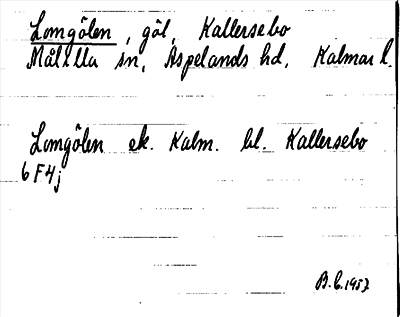 Lomgölen, göl, Kallersebo
Målilla sn, Aspelands hd, Kalmar l.
Lomgölen ek. Kalm. bl. Kallersebo
6F4j
B.C. 1957